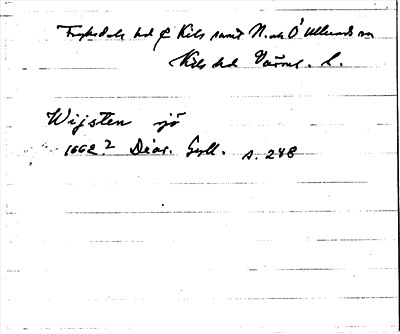 Fryksdals hd & Kils samt N. och Ö Ullerud sn
Kils hd Värml. L.
Wijsten sjö
1662? Diar. Gyll. s. 248